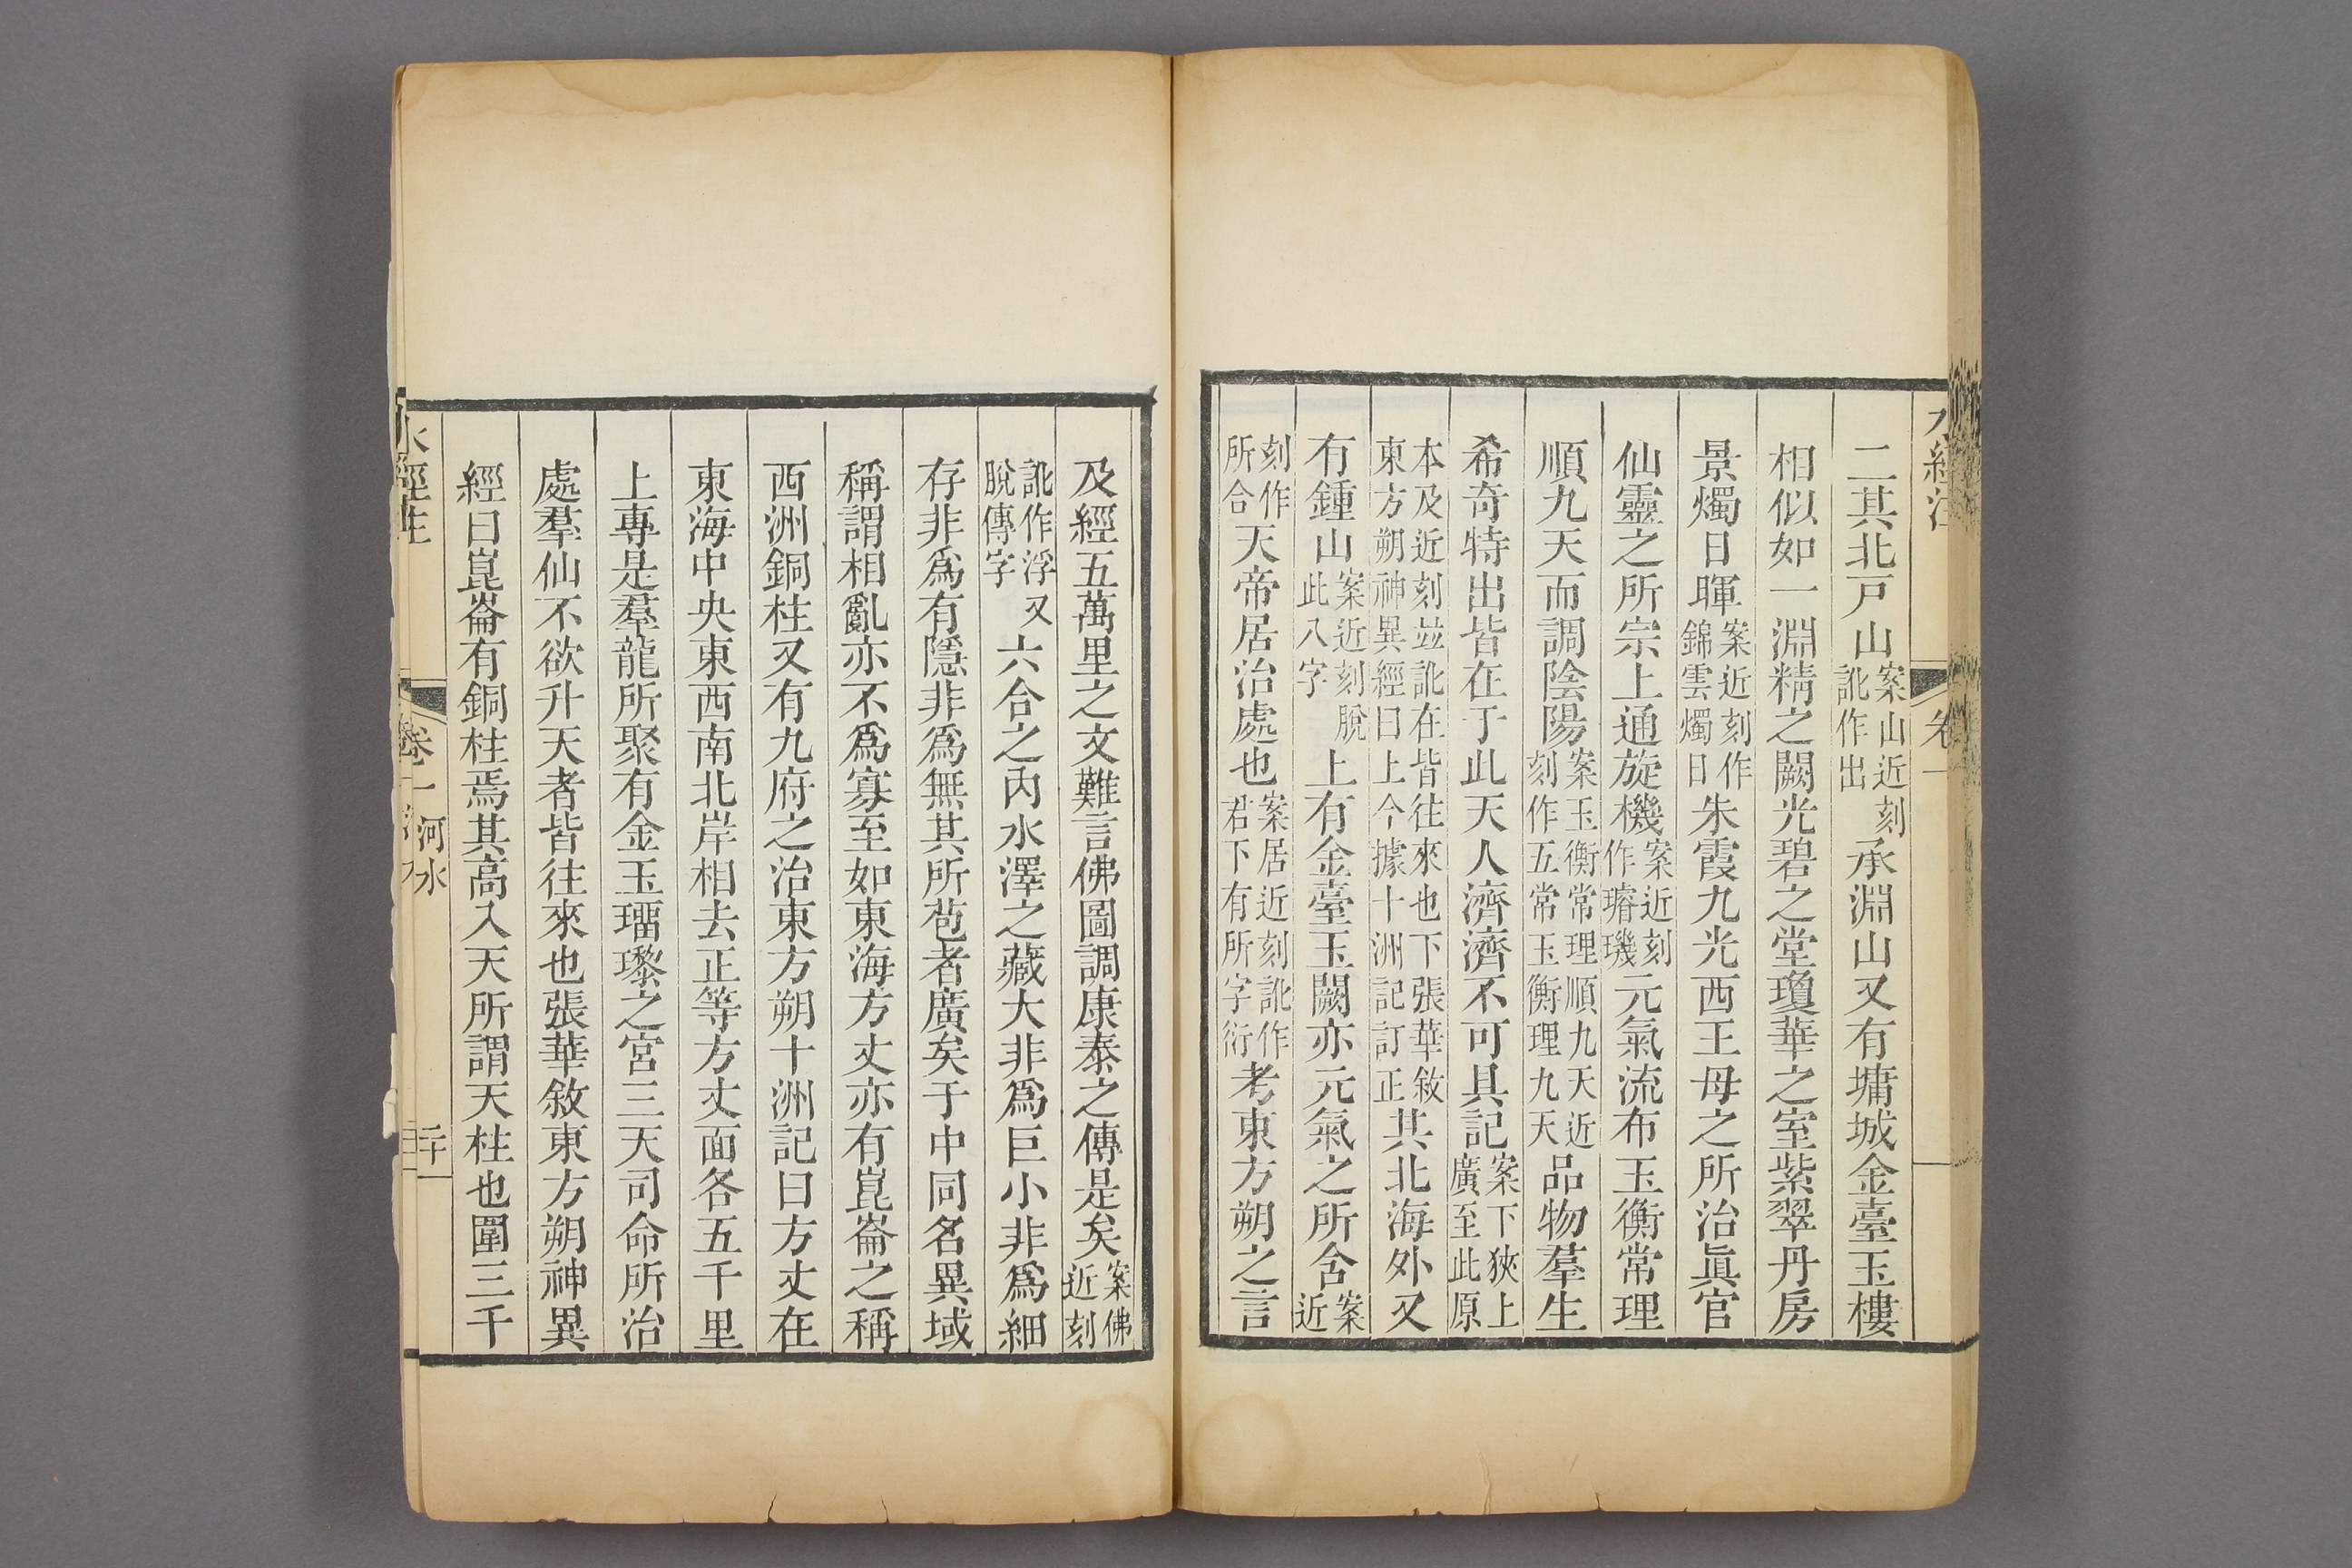 水經注 卷一
二其北戸山案山近刻訛作出承淵山又有墉城金臺玉樓
相似如一淵精之闕光碧之堂瓊華之室紫翠丹房
景燭日暉案近刻作錦雲燭日朱霞九光西王母之所治眞官
仙靈之所宗上通旋機案近刻作璿璣元氣流布玉衡常理
順九天而調陰陽案玉衡常理順九天近刻作五常玉衡理九天品物羣生
希奇特出皆在于此天人濟濟不可具記案下狹上廣至此原
本及近刻竝訛在皆往來也下張華敘東方朔神異經曰上今據十洲記訂正其北海外又
有鍾山案近刻脫此八字上有金臺玉闕亦元氣之所含案近
刻作所合天帝居治處也案居近刻訛作君下有所字衍考東方朔之言
及經五萬里之文難言佛圖調康泰之傳是矣案佛近刻
訛作浮又脫傳字六合之內水澤之藏大非爲巨小非爲細
存非爲有隱非爲無其所苞者廣矣于中同名異域
稱謂相亂亦不爲寡至如東海方丈亦有崑崙之稱
西洲銅柱又有九府之治東方朔十洲記曰方丈在
東海中央東西南北岸相去正等方丈面各五千里
上專是羣龍所聚有金玉琉瓈之宮三天司命所治
處羣仙不欲升天者皆往來也張華敘東方朔神異
經曰崑崙有銅柱焉其高入天所謂天柱也圍三千
水經注 卷一 河水 二十